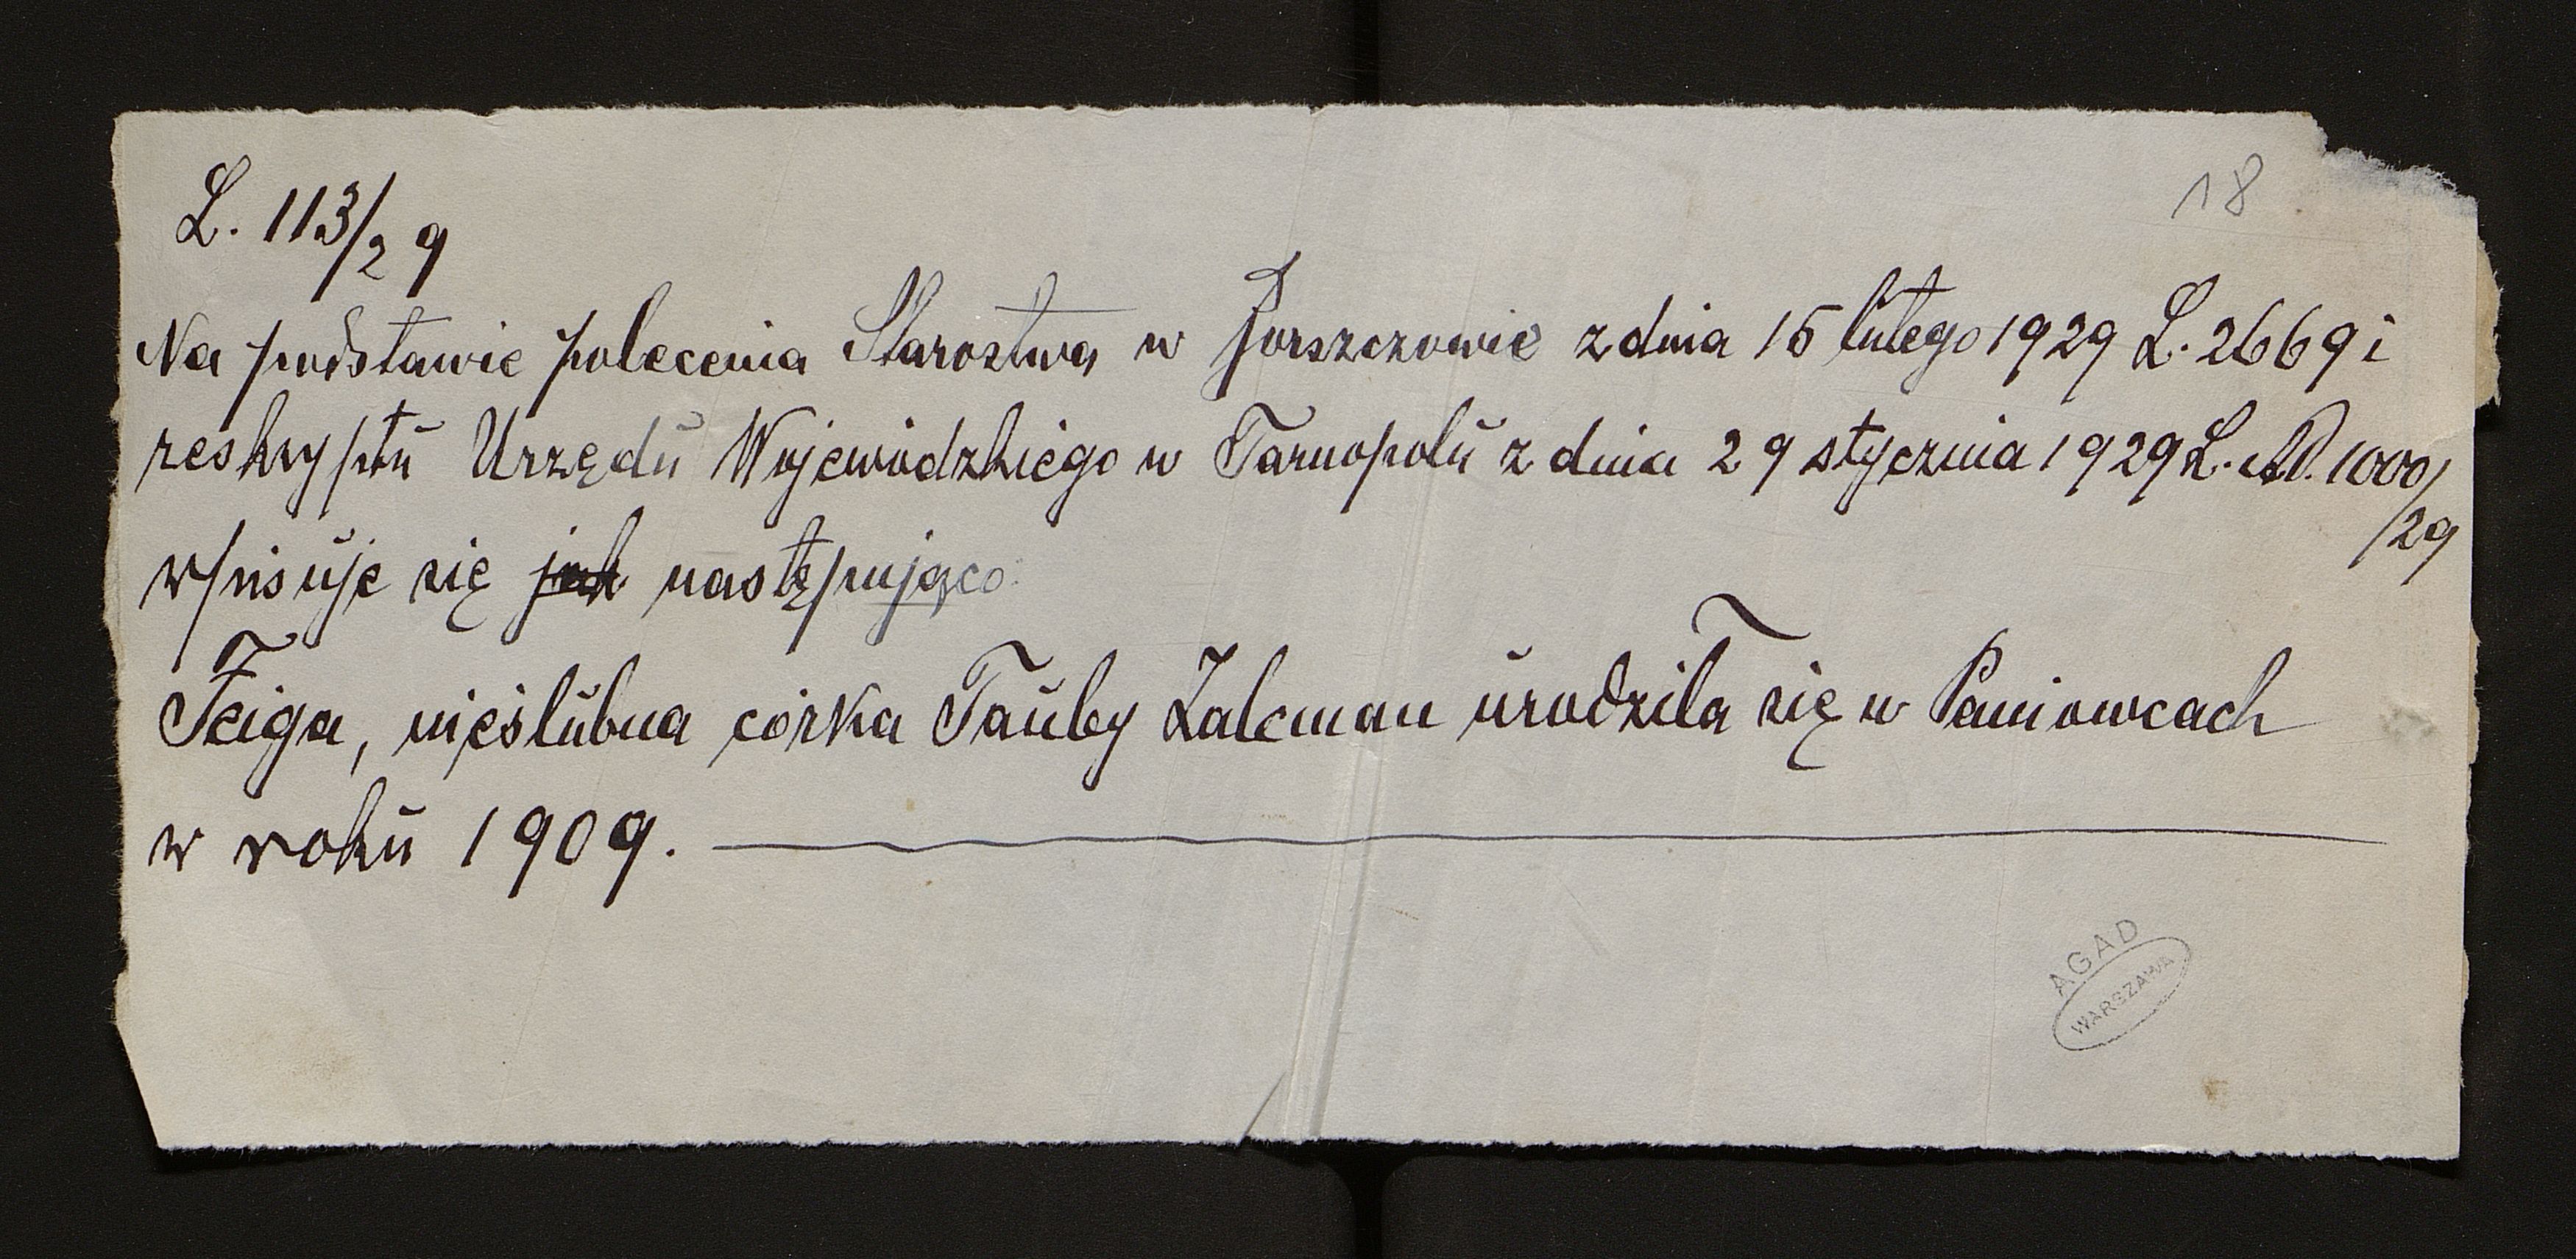 18
L. 113/29
Na podstawie polecenia Starostwa w Borszczowie z dnia 15 lutego 1929 L. 2669 i
reskryptu Urzędu Wojewódzkiego w Tarnopolu z dnia 29 stycznia 1929 L. AD. 1000/
/29
wpisuje się jak następująco:
Feiga, nieślubna córka Tauby Zalcman urodziła się w Paniowcach
w roku 1909.
AGAD
WARSZAWA